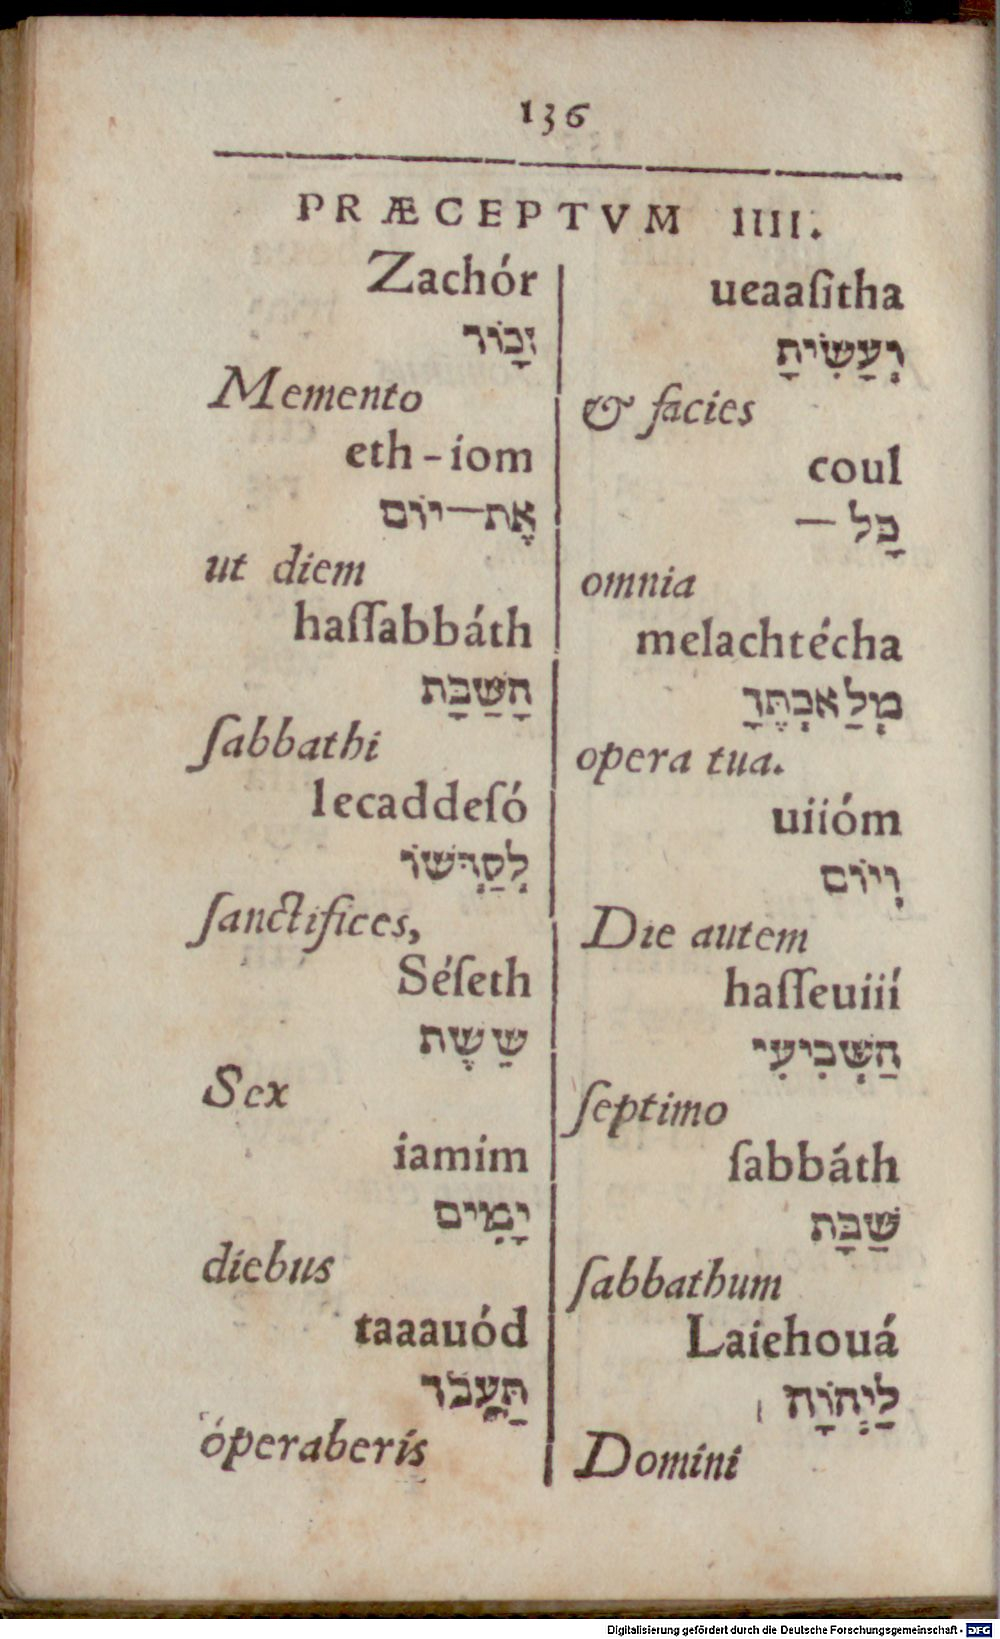 136
PRÆCEPTVM IIII.
Zachór
זָכוֹר
Memento
eth-iom
אֶת—יוֹם
ut diem
haſſabbáth
הָשַּבָּת
ſabbathi
lecaddeſó
לְקַדְּשׁוֹ
ſanctifices,
Séſeth
שֵ שֶת
Sex
iamim
יָמִים
diebus
taaauód
תַּעֲבֹד
óperaberis
ueaaſitha
וְעָשִׂיתָ
& facies
coul
כָּל —
omnia
melachtécha
מְלַאכְתֶּךָ
opera tua.
uiióm
וְיוֹם
Die autem
haſſeuiií
הַשְּׁבִיעִי
ſeptimo
ſabbáth
שַׁבָּת
ſabbathum
Laiehouá
לַיְהֹוָה
Domini
Digitalisierung gefördert durch die Deutsche Forschungsgemeinschaft - DFG